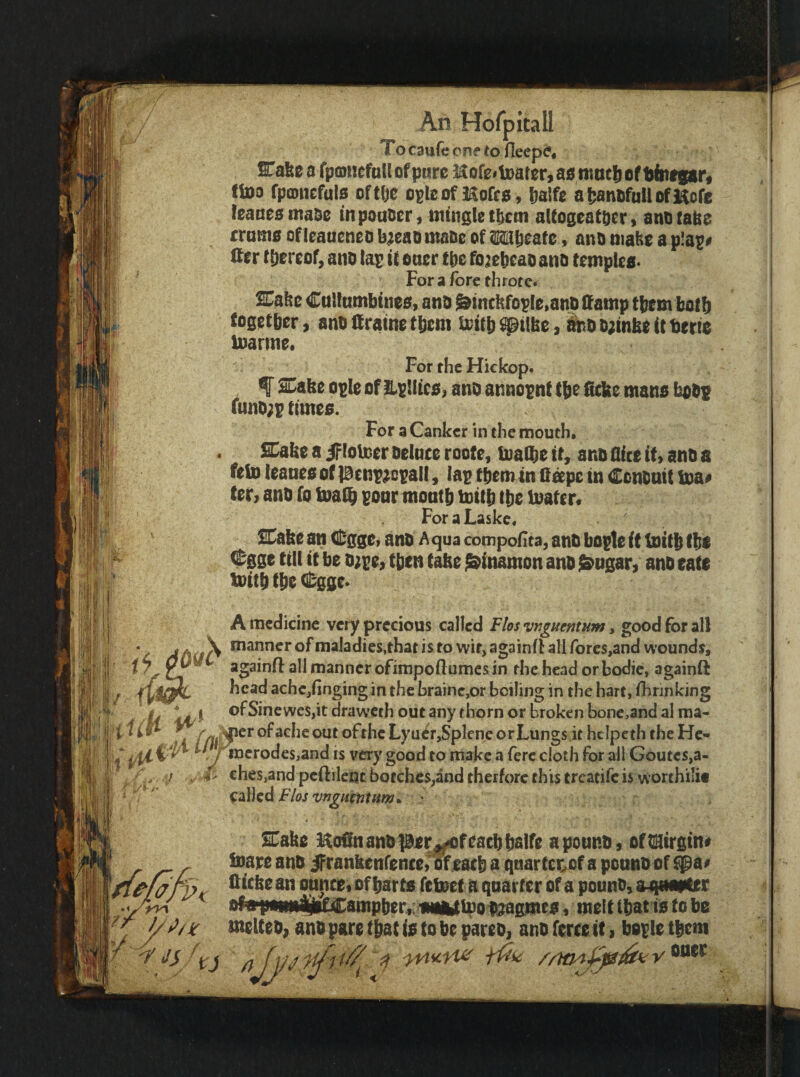 An Hoſpitall
To cauſe one to ſleepe.
Take a ſpoonefull of pure Roſe-water, as much of vinegar,
two ſpoonefuls of the oyle of Roſes, halfe a handfull of Roſe
leaues made in pouder, mingle them altogeather, and take
crums of leauened bread made of Wheate, and make a play-
ſter thereof, and lay it ouer the forehead and temples.
For a ſore throte.
Take Cullumbines, and Sinckfoyle, and ſtamp them both
together, and ſtraine them with Milke, and drinke it verie
warme.
For the Hickop.
¶ Take oyle of Lyllies, and annoynt the ſicke mans body
ſundry times.
For a Canker in the mouth.
Take a Flower deluce roote, waſhe it, and ſlice it, and a
few leaues of Penyroyall, lay them in ſteepe in Conduit wa-
ter, and ſo waſh your mouth with the water.
For a Laske.
Take an Egge, and Aqua compoſita, and boyle it with the
Egge till it be drye, then take Sinamon and Sugar, and eate
with the Egge.
A medicine very precious called Flos vnguentum, good for all
manner of maladies, that is to wit, againſt all ſores, and wounds,
againſt all manner of impoſtumes in the head or bodie, againſt
head ache, ſinging in the braine, or boiling in the hart, ſhrinking
of Sinewes, it draweth out any thorn or broken bone, and al ma-
per of ache out of the Lyuer, Splene or Lungs it helpeth the He-
merodes, and is very good to make a ſere cloth for all Goutes, a-
ches, and peſtilent botches, and therfore this treatiſe is worthilie
called Flos vnguentum.
Take Roſin and Per of each halfe a pound, of Virgin-
ware and Frankenſence, of each a quarter, of a pound of Ma-
ſticke an ounce, of harts ſewet a quarter of a pound, a quarter
of Campher, two dragmes, melt that is to be
melted, and pare that is to be pared, and ſerce it, boyle them
ouer